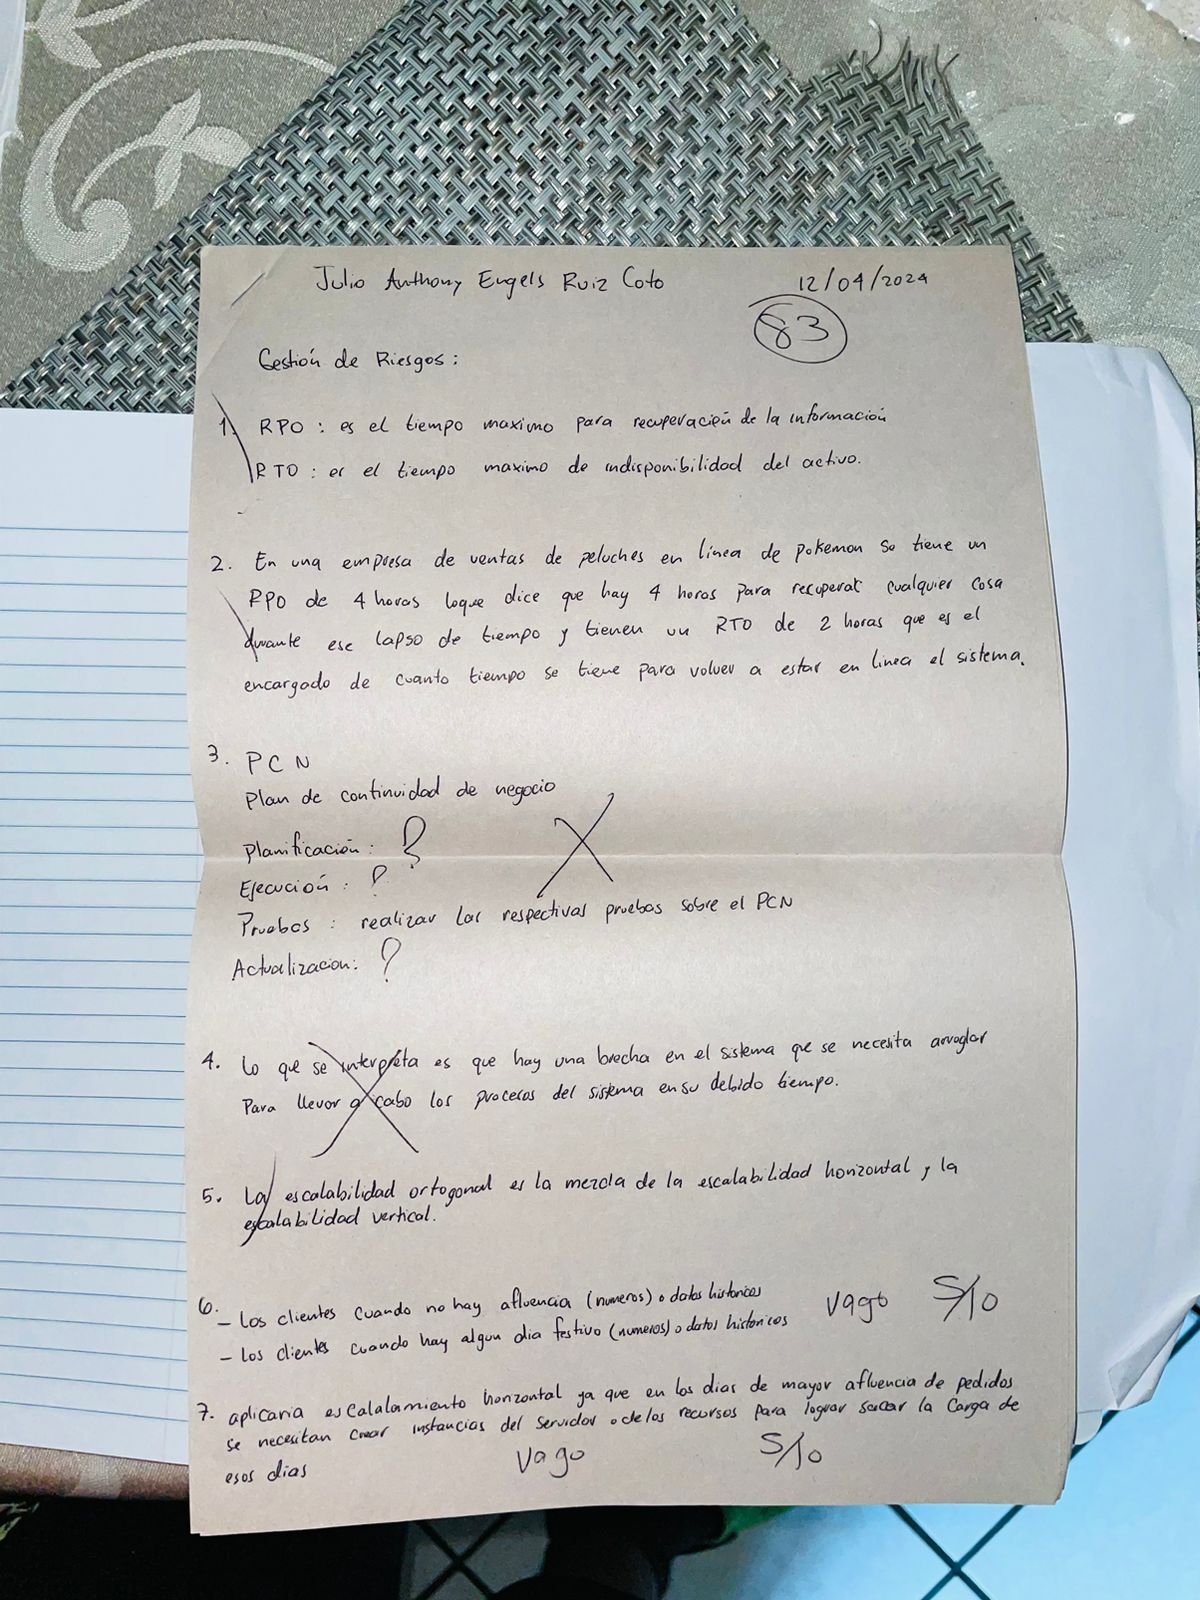 Julio Anthony Engels Ruiz Coto 12/04/2024
83
Gestión de Riesgos:
1. RPO: es el tiempo maximo para recuperación de la información
RTO: es el tiempo maximo de indisponibilidad del activo.
2. En una empresa de ventas de peluches en línea de pokemon se tiene un
RPO de 4 horas loque dice que hay 4 horas para recuperar cualquier cosa
durante ese lapso de tiempo y tienen un RTO de 2 horas que es el
encargado de cuanto tiempo se tiene para volver a estar en linea el sistema.
3. PCN
Plan de continuidad de negocio
Planificación: ?
Ejecución: ?
Pruebas: realizar las respectivas pruebas sobre el PCN
Actualizacion: ?
4. Lo que se interpreta es que hay una brecha en el sistema que se necesita arreglar
Para llevar a cabo los procesos del sistema en su debido tiempo.
5. La escalabilidad ortogonal es la mezcla de la escalabilidad horizontal y la
escalabilidad vertical.
6. - Los clientes cuando no hay afluencia (numeros) o datos historicos Vago 5/10
- Los clientes cuando hay algun dia festivo (numeros) o datos historicos
7. aplicaria escalalamiento horizontal ya que en los dias de mayor afluencia de pedidos
se necesitan crear instancias del servidor o de los recursos para lograr sacar la carga de
esos dias Vago 5/10